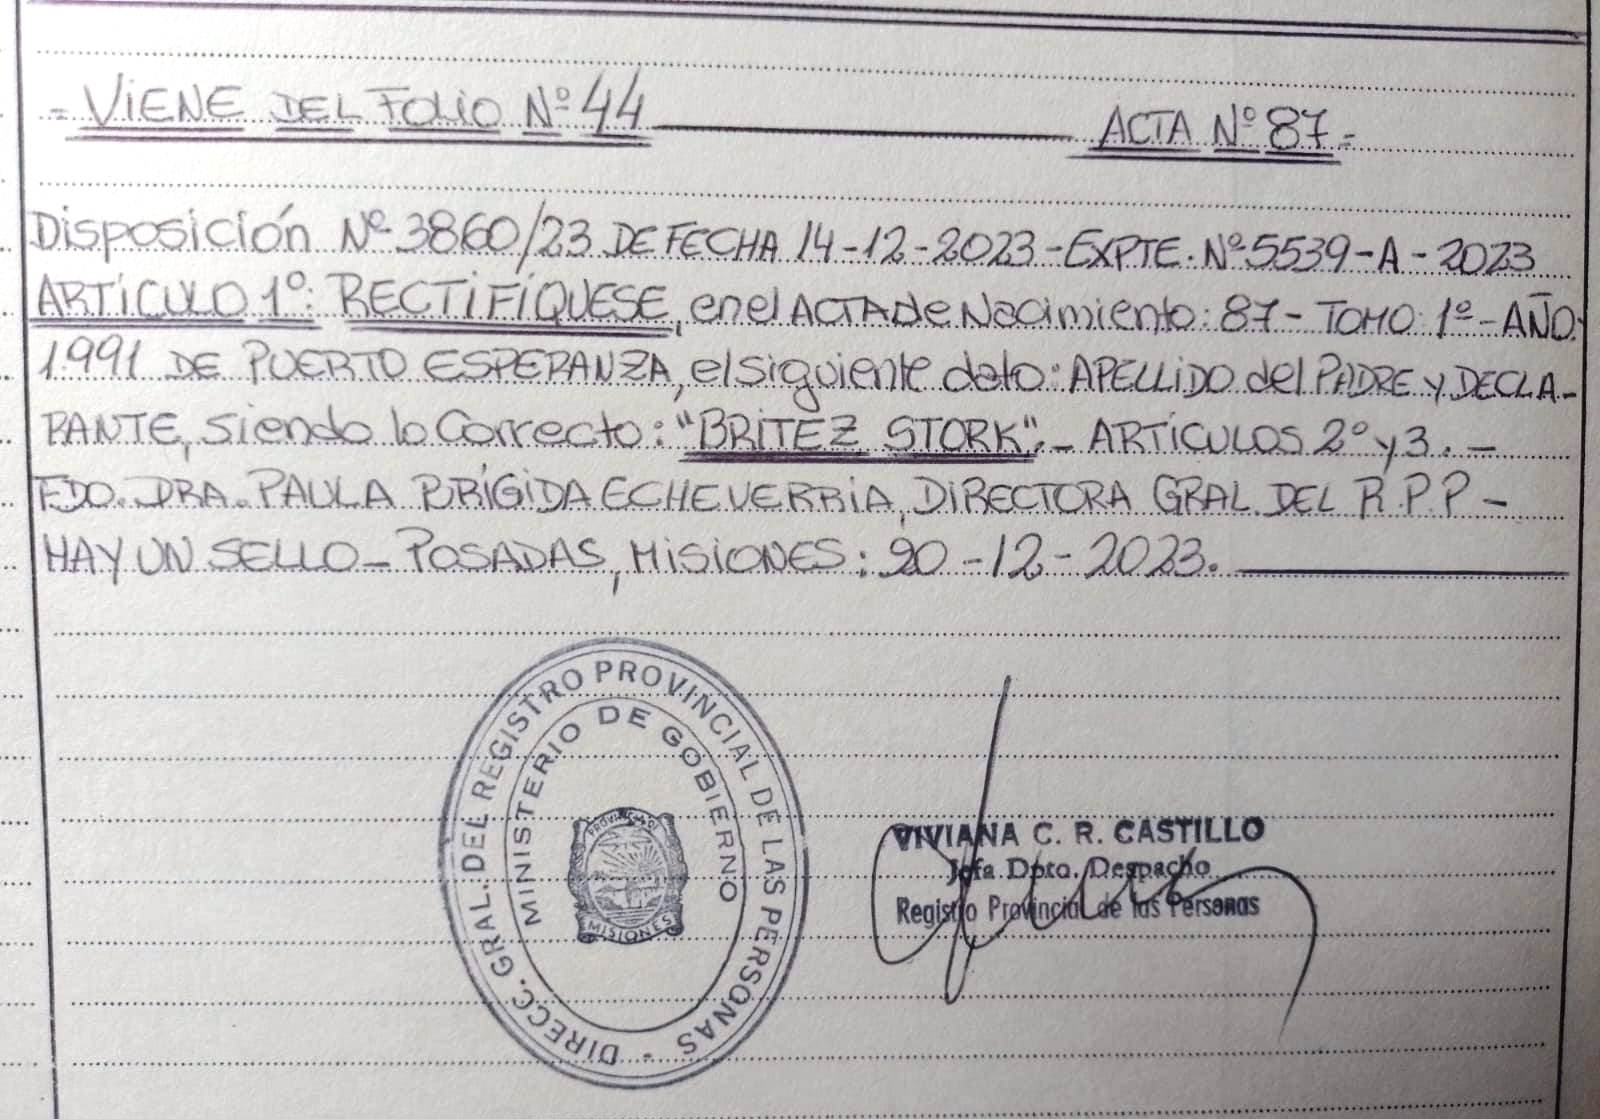 = VIENE DEL FOLIO Nº 44 ACTA Nº 87=
Disposición Nº 3860/23 DE FECHA 14-12-2023-EXPTE. Nº5539-A-2023
ARTÍCULO 1º: RECTIFÍQUESE, en el ACTA de Nacimiento: 87- TOMO: 1º-AÑO:
1991 DE PUERTO ESPERANZA, el siguiente dato: APELLIDO del PADRE y DECLA-
RANTE, siendo lo Correcto: "BRITEZ STORK".- ARTÍCULOS 2º y 3. -
FDO. DRA. PAULA BRÍGIDA ECHEVERRIA, DIRECTORA GRAL. DEL R.P.P -
HAY UN SELLO- POSADAS, MISIONES: 20-12-2023.
DIRECC. GRAL. DEL REGISTRO PROVINCIAL DE LAS PERSONAS -
MINISTERIO DE GOBIERNO
MISIONES
VIVIANA C. R. CASTILLO
Jefa Dpto. Despacho
Registro Provincial de las Personas